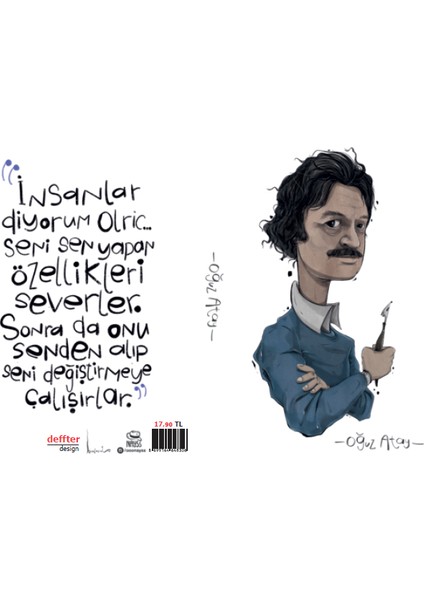 “İnsanlar
diyorum Olric...
seni sen yapan
özellikleri
severler.
Sonra da onu
senden alıp
seni değiştirmeye
çalışırlar.”
—Oğuz Atay—
—Oğuz Atay—
17.90 TL
deffter
design